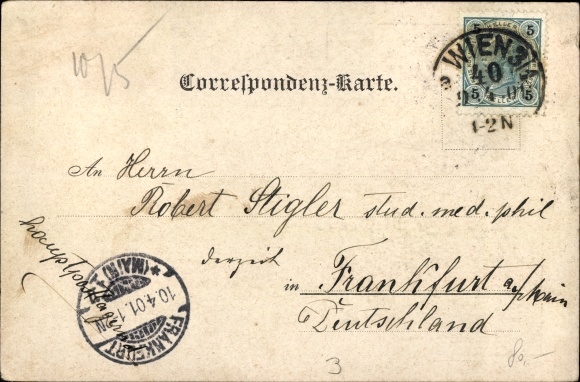 10/5
Correspondenz-Karte.
5 5
HELLER
5 5
WIEN 3/
40
9.4.01
1-2N
An Herrn
Robert Stigler stud. med. phil
derzeit
in Frankfurt a/Main
Deutschland
hauptpostlagernd
FRANKFURT (MAIN)
10.4.01.1-2N
3
80,-